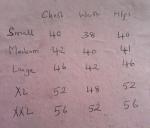 Chest Waist Hips
Small 40 38 40
Medium 42 40 41
Large 46 42 46
XL 52 48 52
XXL 56 52 56